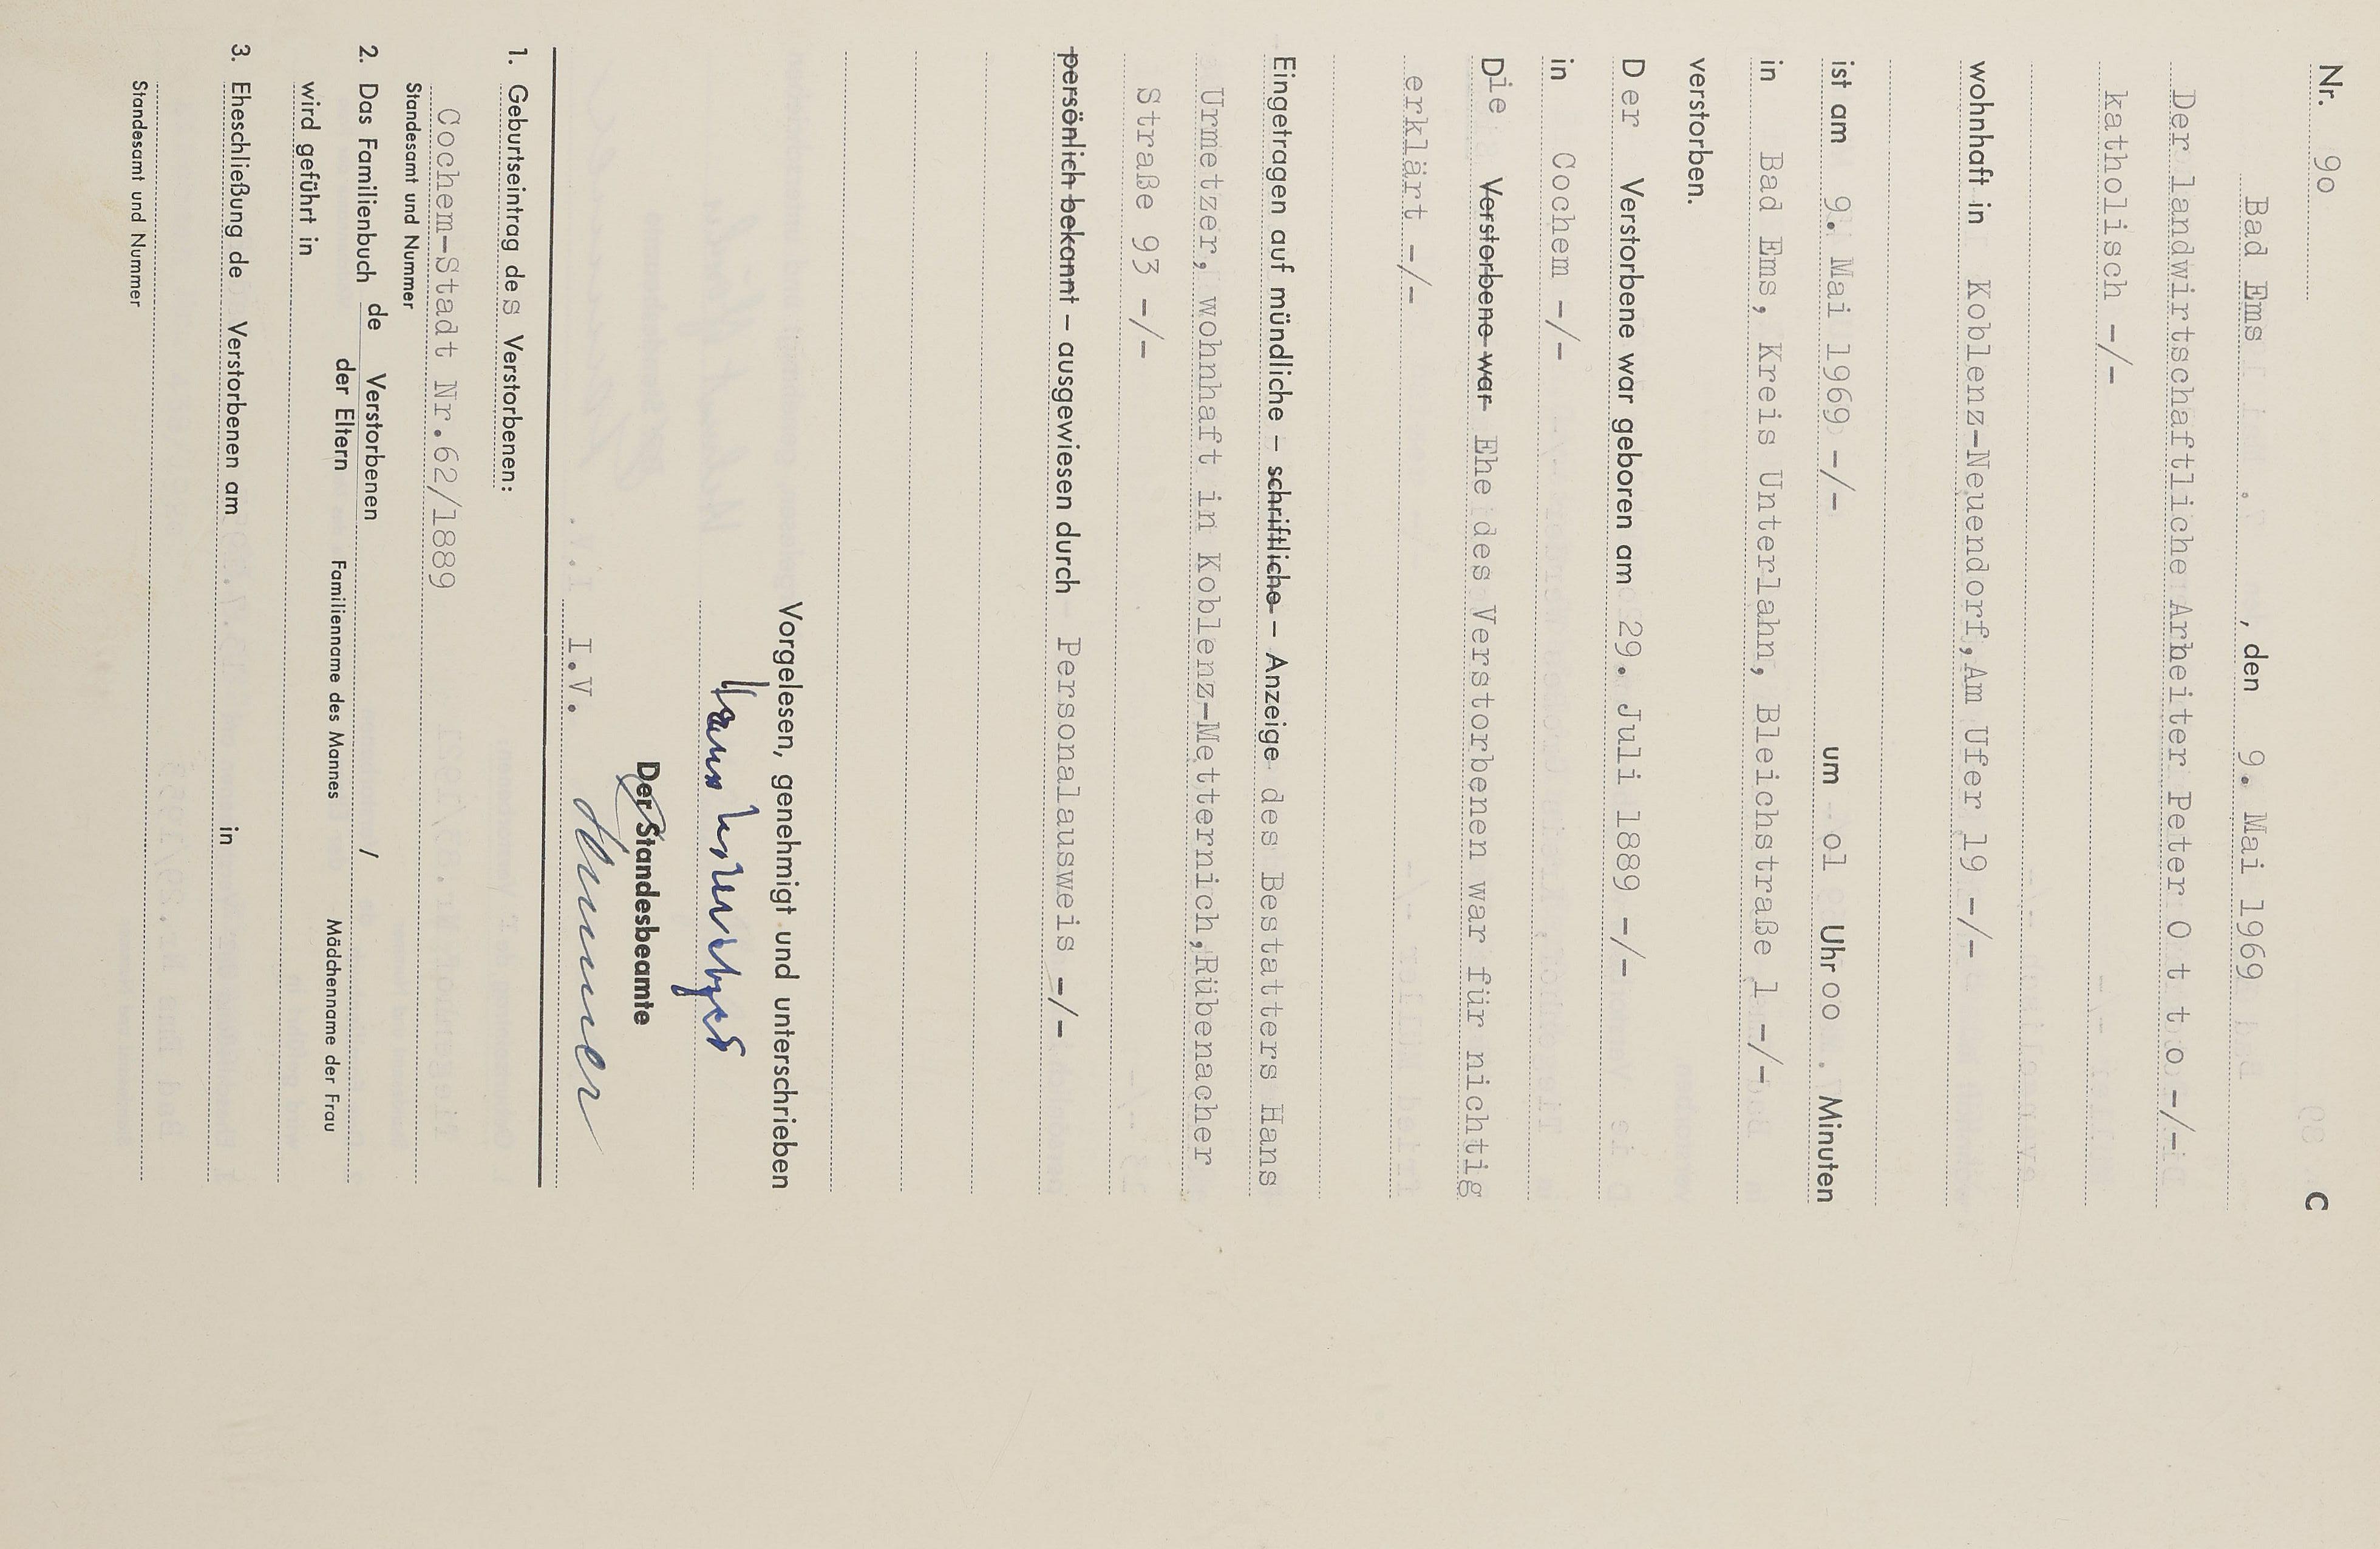 Nr. 90 C
Bad Ems, den 9. Mai 1969
Der landwirtschaftliche Arbeiter Peter O t t o -/-
katholisch -/-
wohnhaft in Koblenz-Neuendorf, Am Ufer 19 -/-
ist am 9. Mai 1969 -/- um o1 Uhr oo Minuten
in Bad Ems, Kreis Unterlahn, Bleichstraße 1 -/-
verstorben.
Der Verstorbene war geboren am 29. Juli 1889 -/-
in Cochem -/-
Die Verstorbene war Ehe des Verstorbenen war für nichtig
erklärt -/-
Eingetragen auf mündliche – schriftliche – Anzeige des Bestatters Hans
Urmetzer, wohnhaft in Koblenz-Metternich, Rübenacher
Straße 93 -/-
persönlich bekannt – ausgewiesen durch Personalausweis -/-
Vorgelesen, genehmigt und unterschrieben
Hans
Der Standesbeamte
I.V.
1. Geburtseintrag des Verstorbenen:
Cochem-Stadt Nr.62/1889
Standesamt und Nummer
2. Das Familienbuch de Verstorbenen /
der Eltern Familienname des Mannes Mädchenname der Frau
wird geführt in
3. Eheschließung de Verstorbenen am in
Standesamt und Nummer